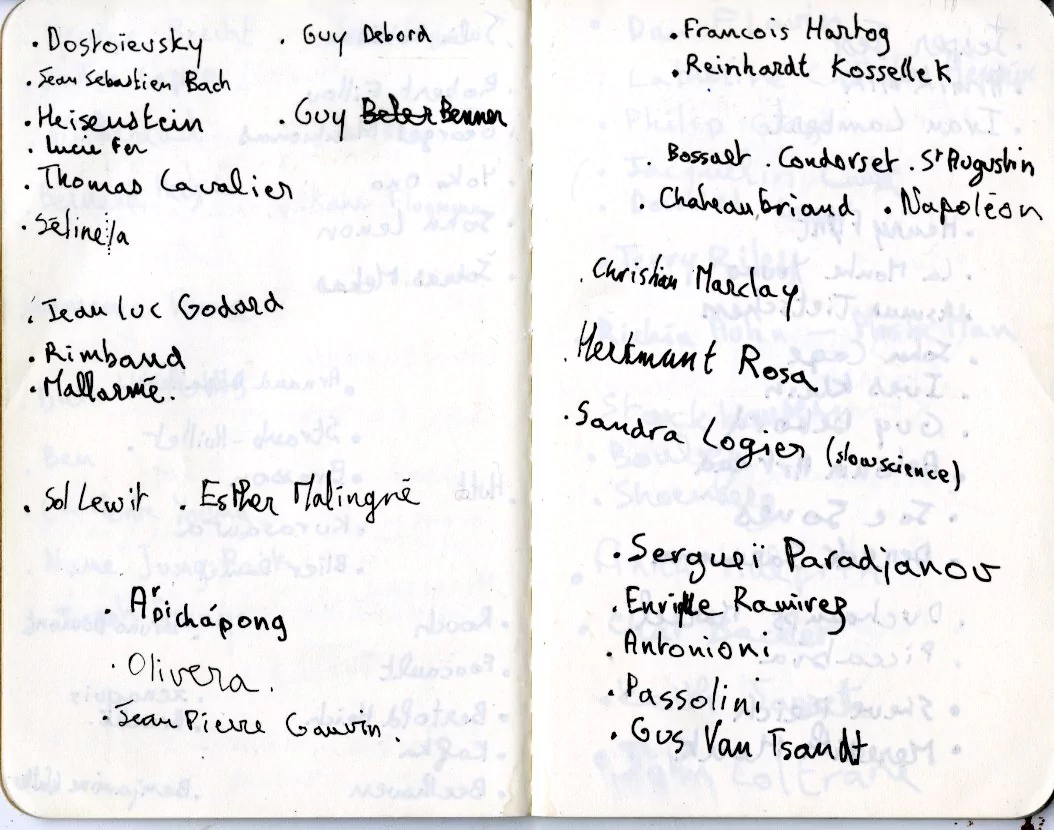 · Dostoïevsky · Guy Debord
· Jean Sebastien Bach
· Heisenstein · Guy Benner
· Lucie Fer
· Thomas Cavalier
· Séline/a
· Jean Luc Godard
· Rimbaud
· Mallarmé.
· Sol Lewit · Esther Malingné
· Apichápong
· Olivera.
· Jean Pierre Gauvin.
· Francois Hartog
· Reinhardt Kossellek
· Bossaet · Condorset · St Augustin
· Chateaubriand · Napoléon
· Christian Marclay
· Hertmunt Rosa
· Sandra Logier (slowscience)
· Sergueï Paradjanov
· Enrike Ramirez
· Antonioni
· Passolini
· Gus Van Tsandt